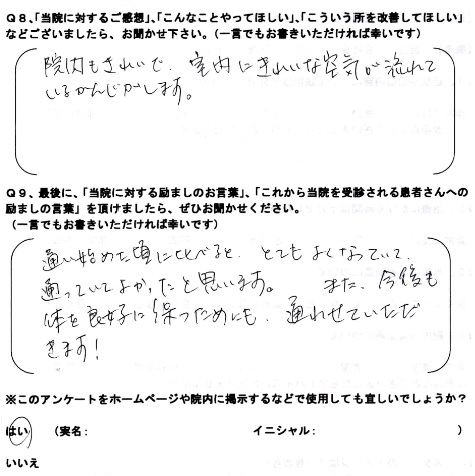 Q８、「当院に対するご感想」、「こんなことやってほしい」、「こういう所を改善してほしい」
などございましたら、お聞かせ下さい。（一言でもお書きいただければ幸いです）
院内もきれいで、室内にきれいな空気が流れて
いるかんじがします。
Q９、最後に、「当院に対する励ましのお言葉」、「これから当院を受診される患者さんへの
励ましの言葉」を頂けましたら、ぜひお聞かせください。
（一言でもお書きいただければ幸いです）
通い始めた頃に比べると、とてもよくなっていて、
通っていてよかったと思います。 また、今後も
体を良好に保つためにも、通わせていただ
きます！
※このアンケートをホームページや院内に掲示するなどで使用しても宜しいでしょうか？
はい （実名： イニシャル： ）
いいえ